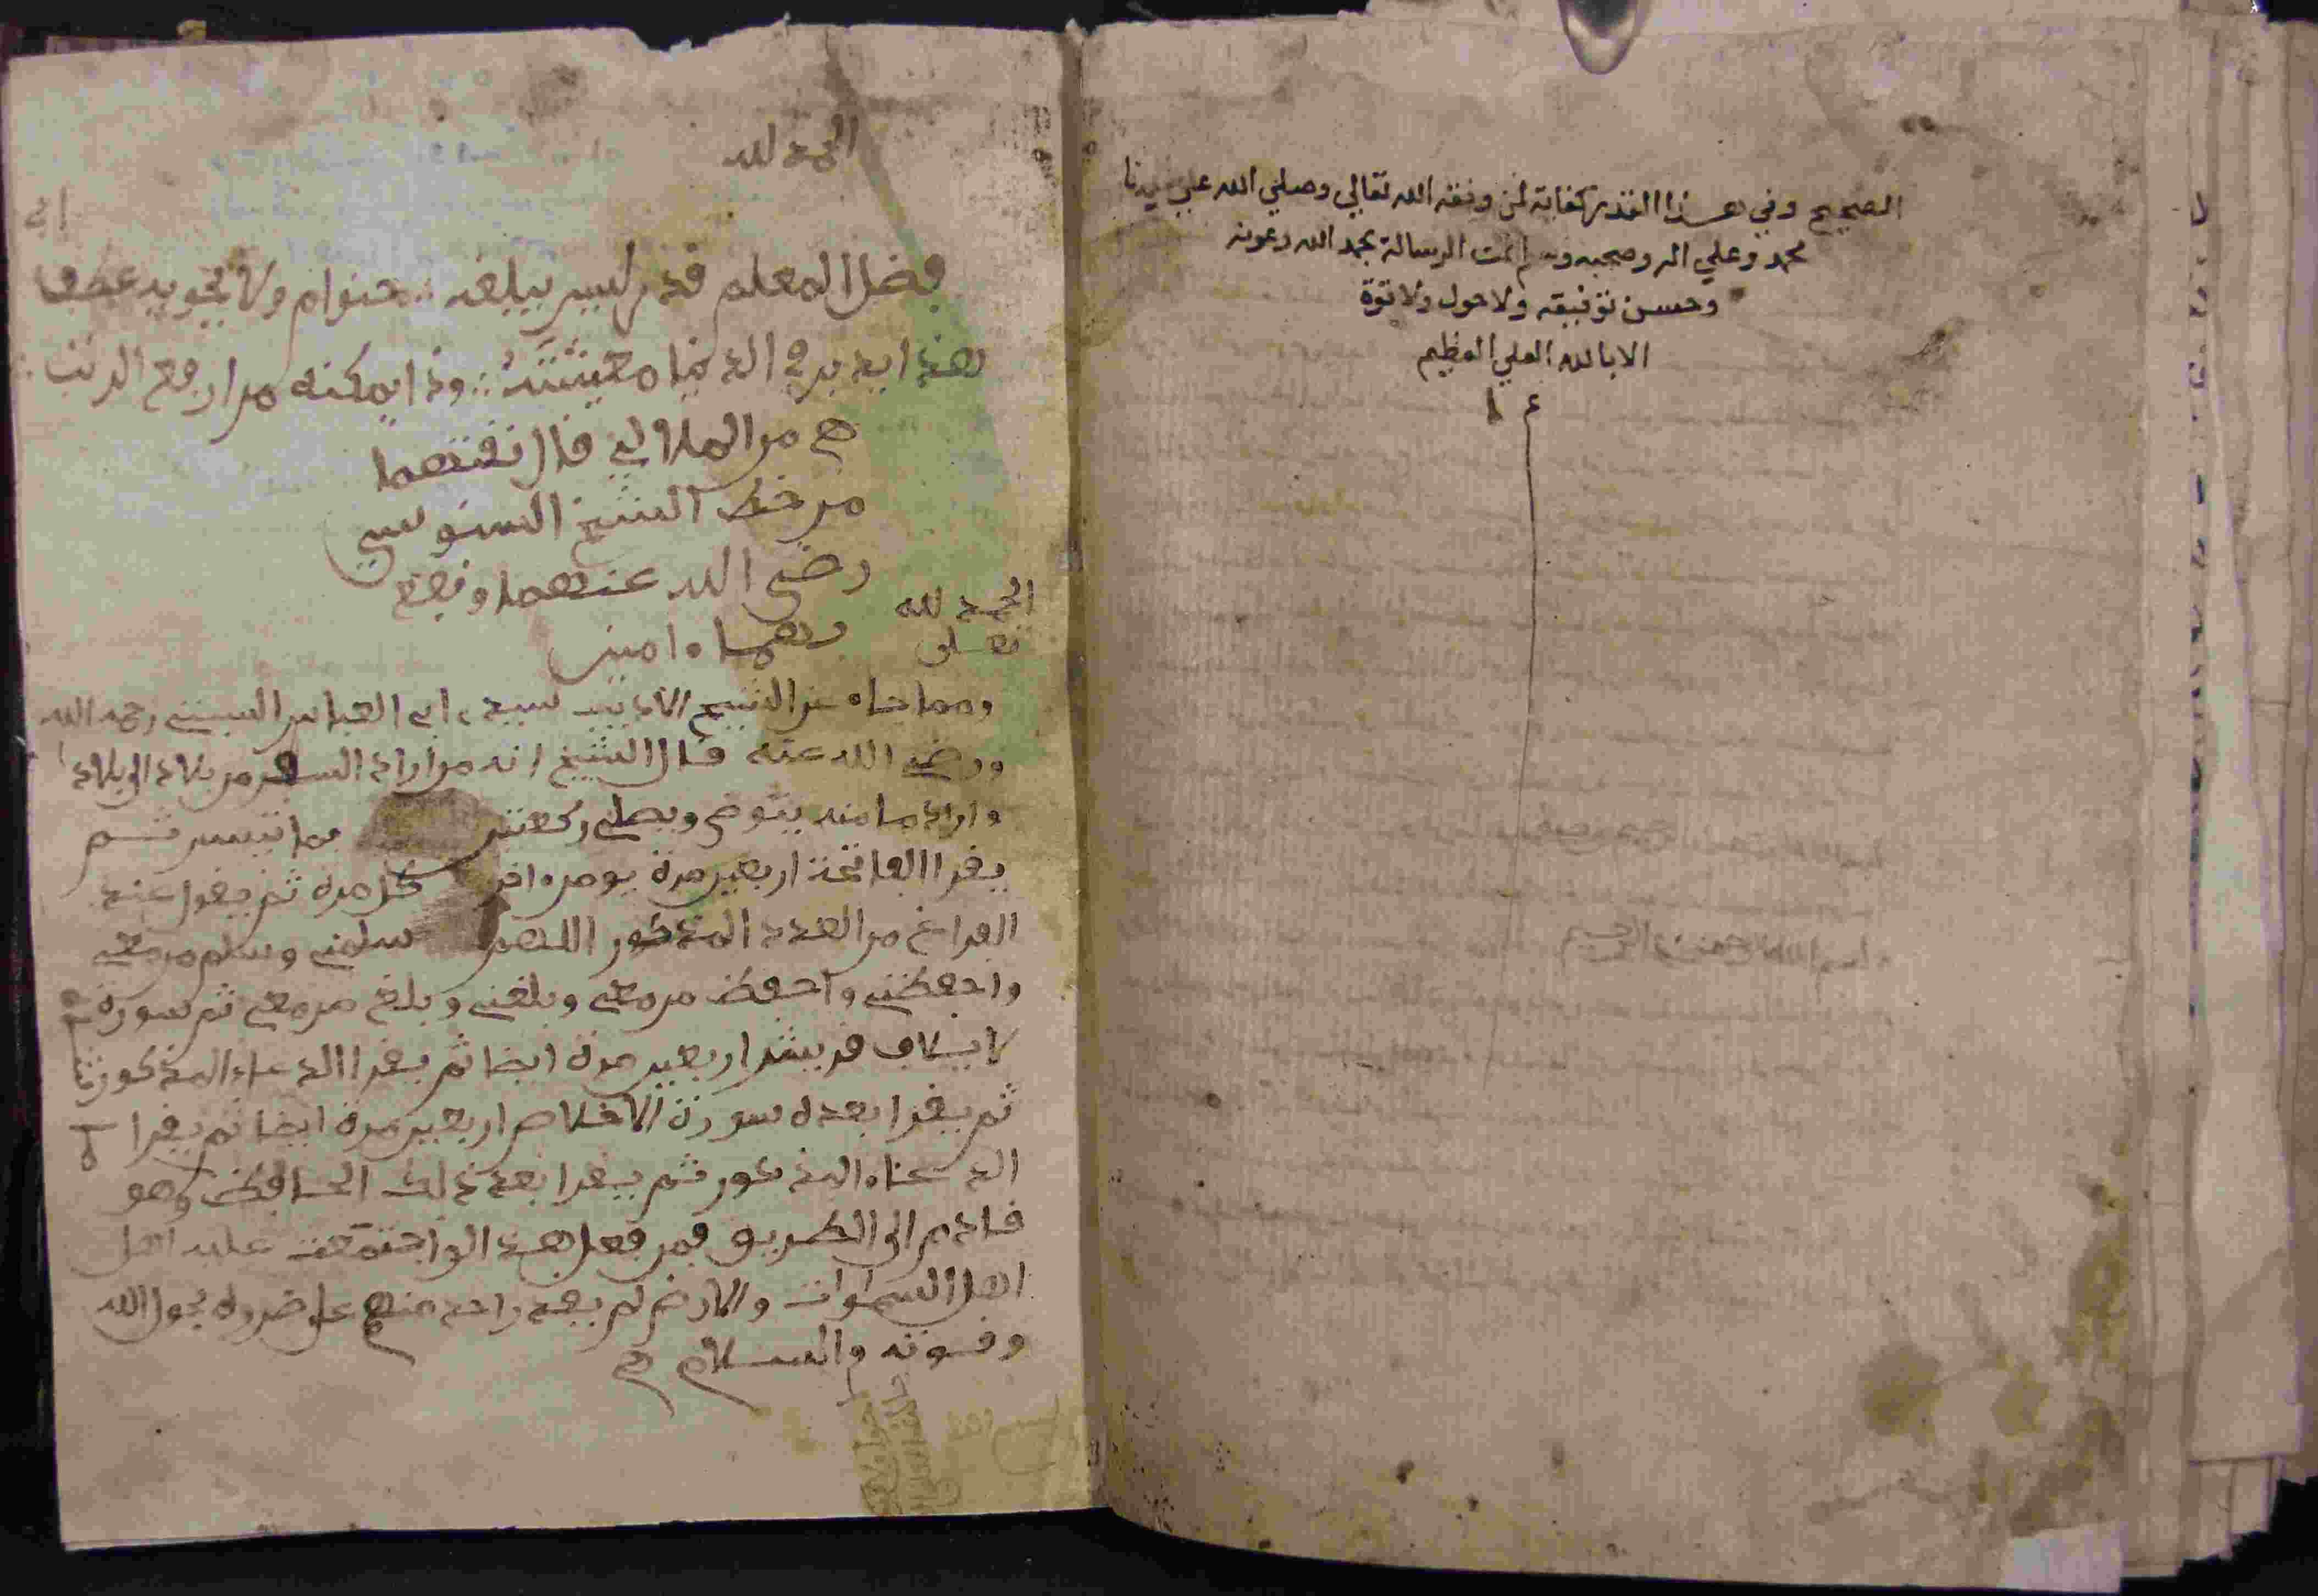 الصحيح وفي هذا القدر كفاية لمن وفقه الله تعالي وصلي الله علي سيدنا
محمد وعلي اله وصحبه وسلم تمت الرسالة بحمد الله وعونه
وحسن توفيقه ولا حول ولا قوة
الا بالله العلي العظيم
الحمد لله
فضل المعلم قدر ليس يبلغه
هذا ابد يرى في الدنيا معيشته وذا يمكنه من ارفع الرتب
صح من الملالي قال نقلتهما
من خط الشيخ السنوسي
رضي الله عنهما ونفع
بهما ءامين
الحمد لله
تعلى
ومما جاء عن الشيخ الاديب سيدي ابي العباس السبتي رحمه الله
ورضي الله عنه قال الشيخ انه من اراد السفر من بلاد الى بلاد
واراد سلامته يتوضى ويصلي ركعتين بما تيسر ثم
يقرا الفاتحة اربعين مرة كل مرة ثم يقول عند
الفراغ من العدد المذكور اللهم سلمني وسلم من معي
واحفظني واحفظ من معي وبلغني وبلغ من معي ثم سورة
لايلاف قريش اربعين مرة ايضا ثم يقرا الدعاء المذكور
ثم يقرا بعده سورة الاخلاص اربعين مرة ايضا ثم يقرا
الدعاء المذكور ثم يقرا بعد ذلك وهو
قادم الى الطريق فمن فعل هذا لو اجتمعت عليه اهل
اهل السموات والارض لم يقدر احد منهم على ضرره بحول الله
وقوته والسلام صح